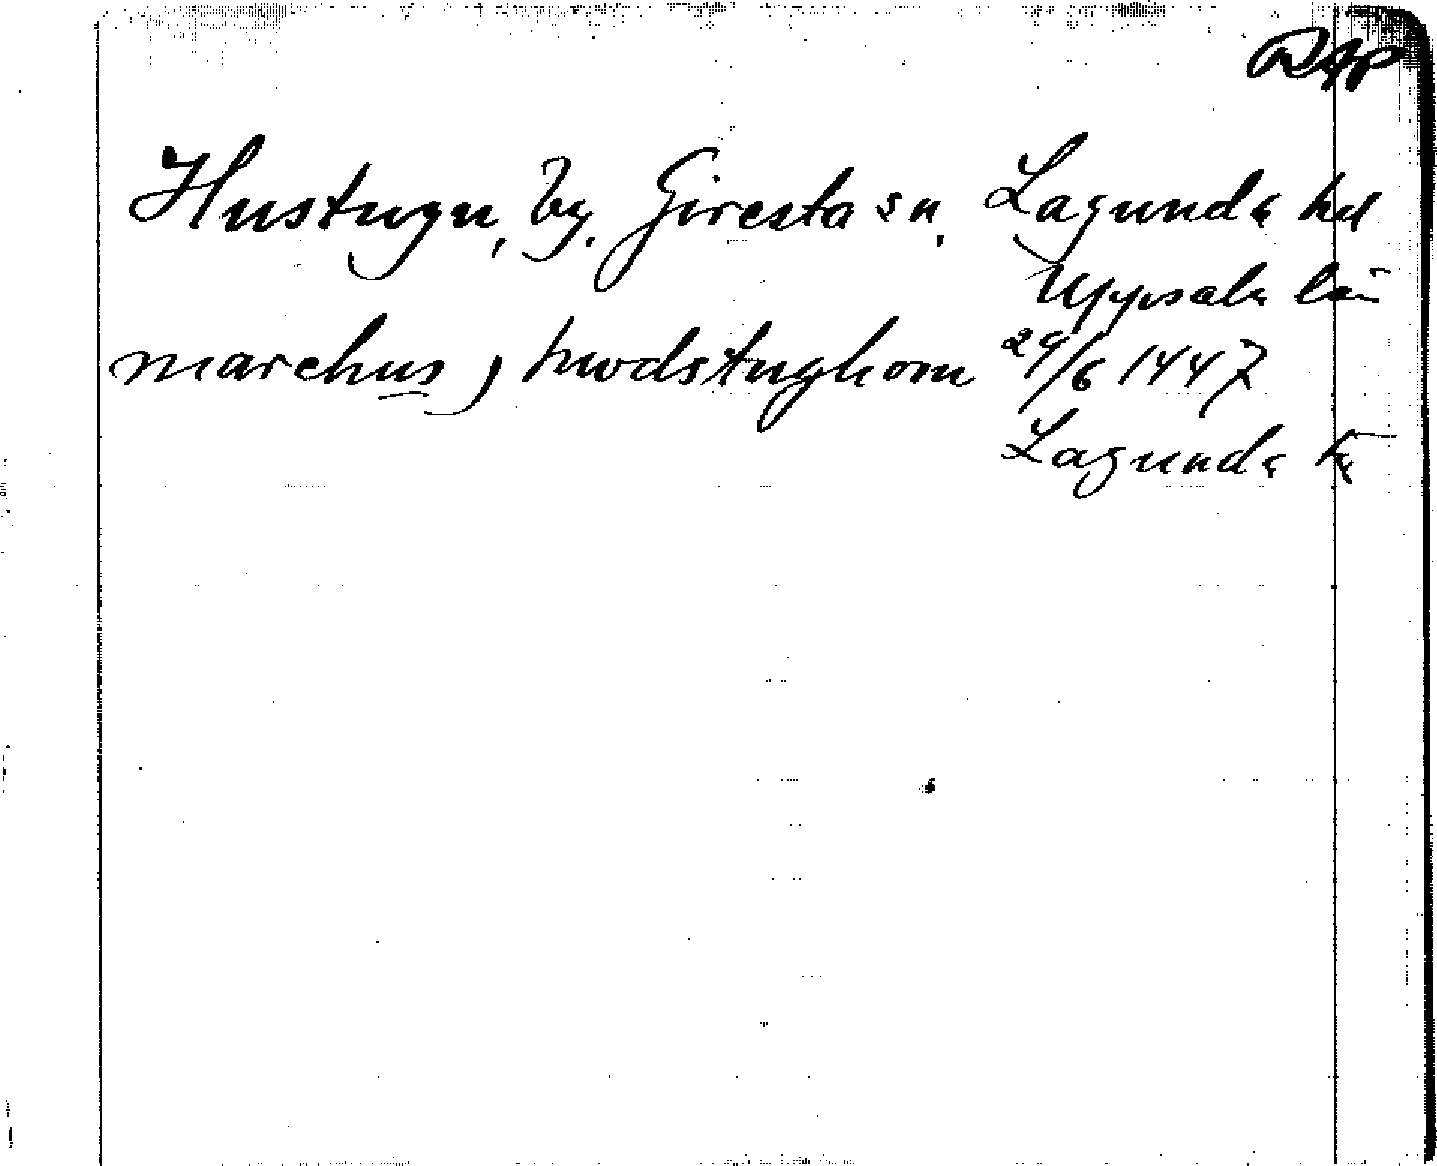 DAp
Hustugu, by, Giresta sn, Lagunda hd
Uppsala län
marchus j hwdstughom 29/6 1447
Lagunda